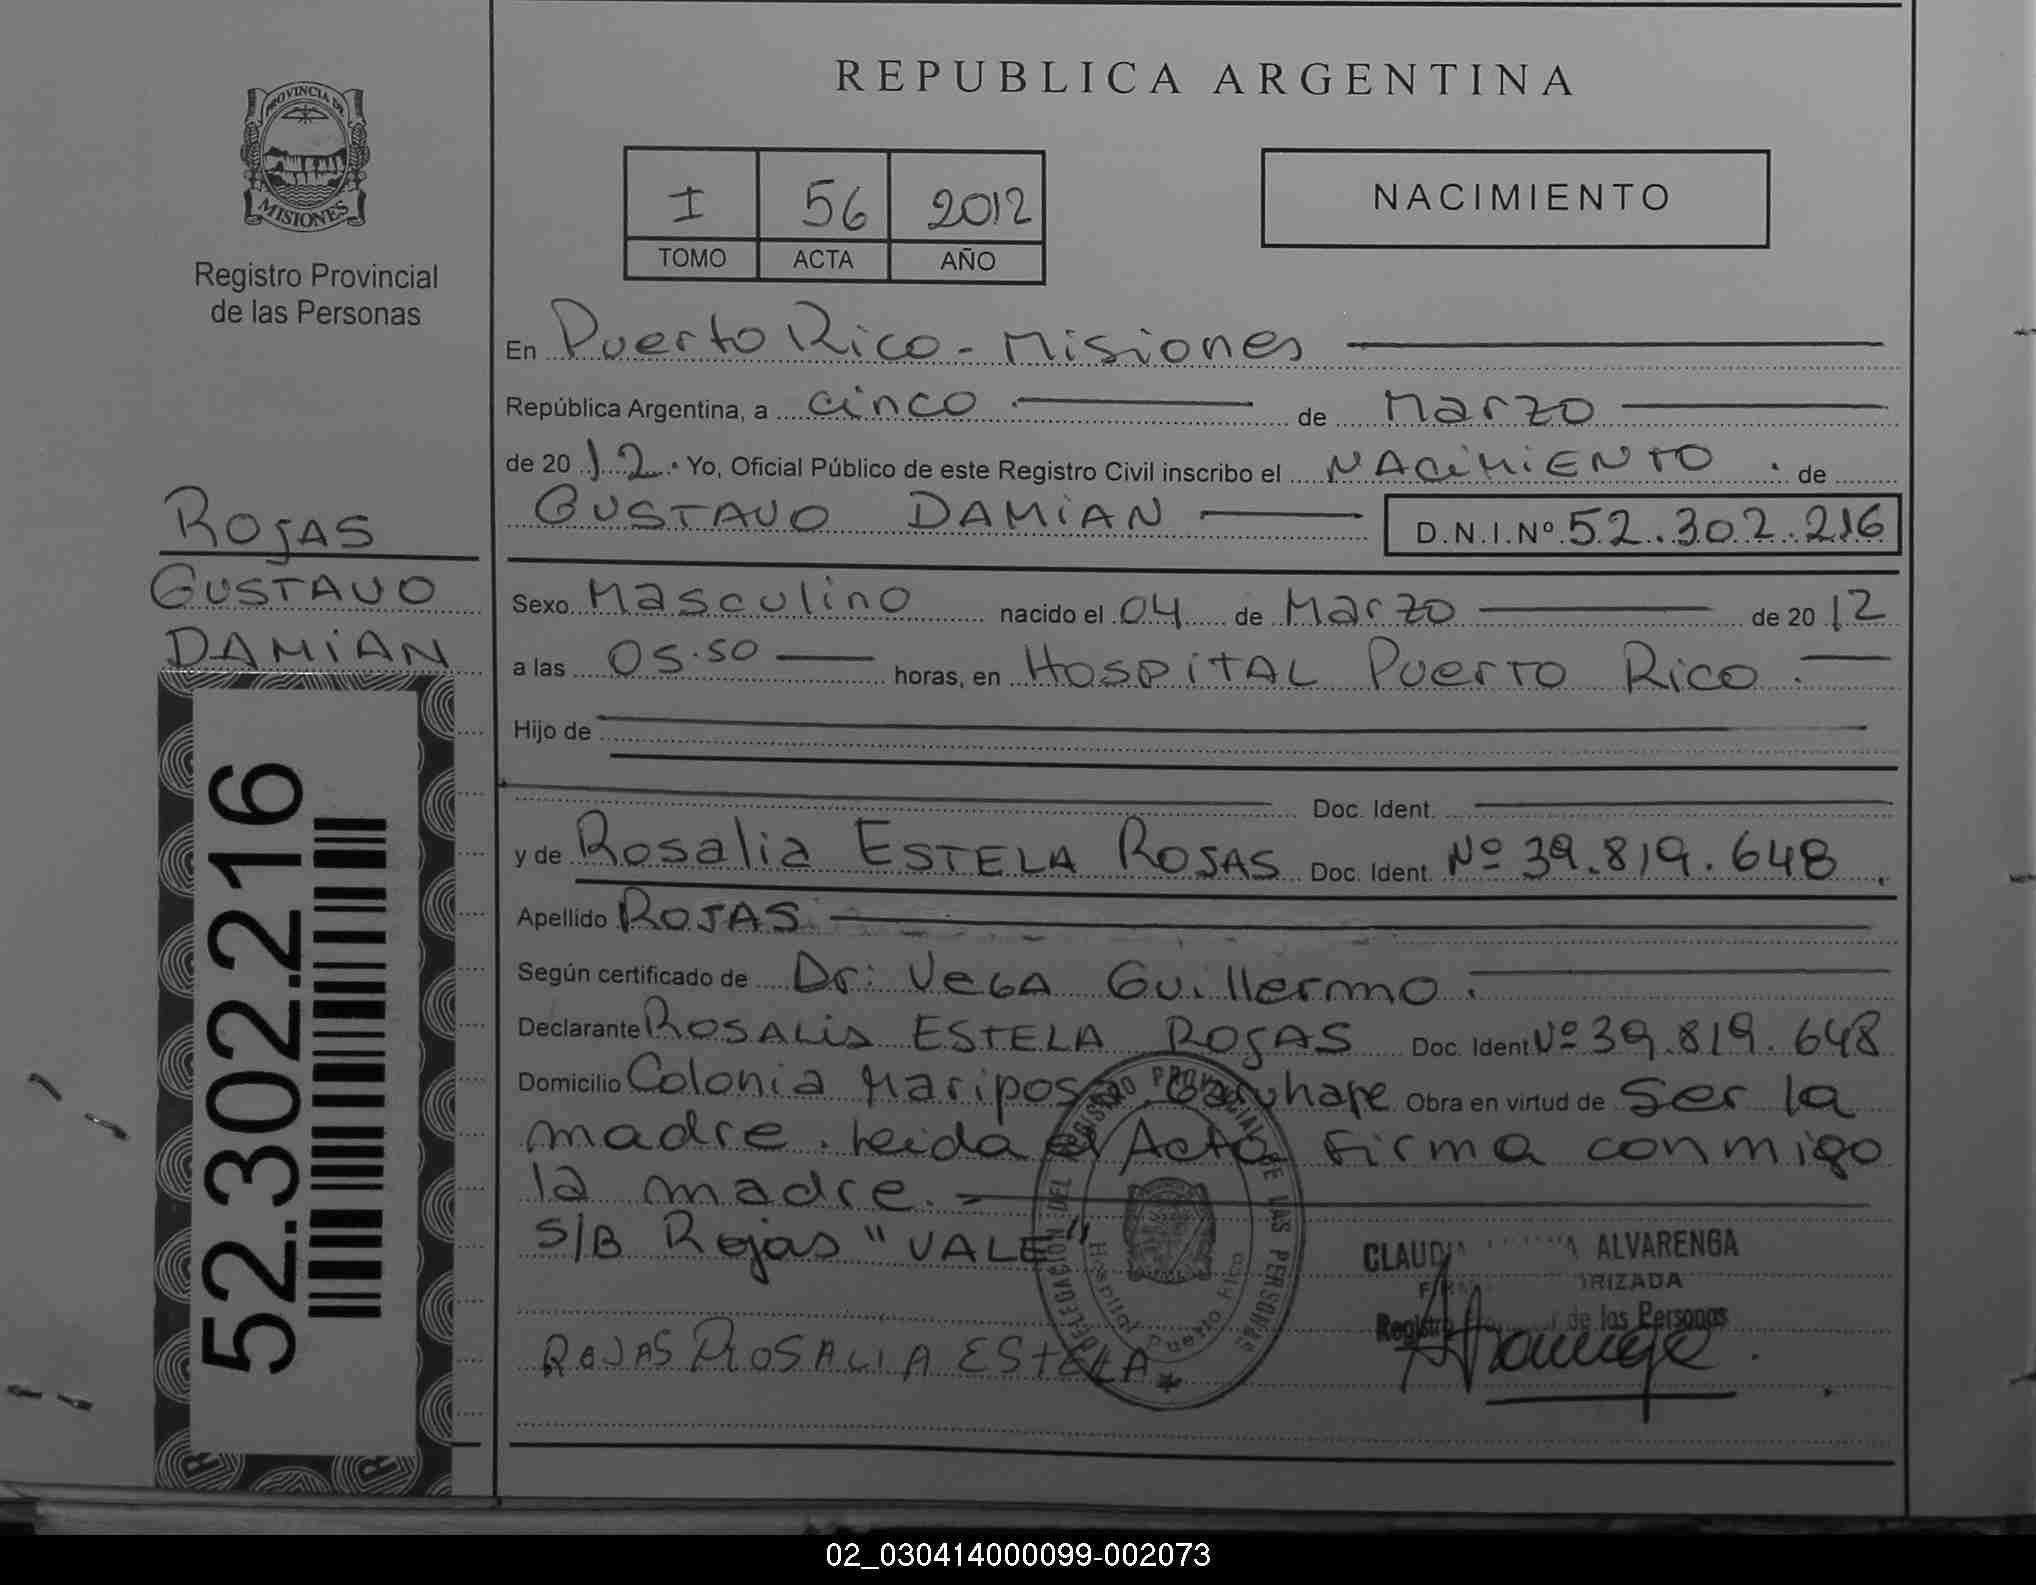 REPUBLICA ARGENTINA
PROVINCIA DE
MISIONES
Registro Provincial
de las Personas
I 56 2012
TOMO ACTA AÑO
NACIMIENTO
En Puerto Rico - Misiones
República Argentina, a cinco de Marzo
de 2012. Yo, Oficial Público de este Registro Civil inscribo el NACIMIENTO. de
GUSTAVO DAMIAN D.N.I.Nº 52.302.216
ROJAS
GUSTAVO
DAMIAN
52.302.216
Sexo Masculino nacido el 04 de Marzo de 2012
a las 05.50 horas, en HOSPITAL Puerto Rico.
Hijo de
Doc. Ident.
y de Rosalia ESTELA ROSAS Doc. Ident. Nº 39.819.648.
Apellido ROJAS
Según certificado de Dr: VEGA Guillermo.
Declarante ROSALIA ESTELA ROJAS Doc. Ident Nº 39.819.648
Domicilio Colonia Mariposa Garuhape Obra en virtud de Ser la
madre. Leida el Acta firma conmigo
la madre.
S/B Rojas "VALE"
DELEGACION DEL REGISTRO PROVINCIAL DE LAS PERSONAS
Hospital Puerto Rico
CLAUDIA ALVARENGA
Registro de las Personas
ROJAS ROSALIA ESTELA
02_030414000099-002073